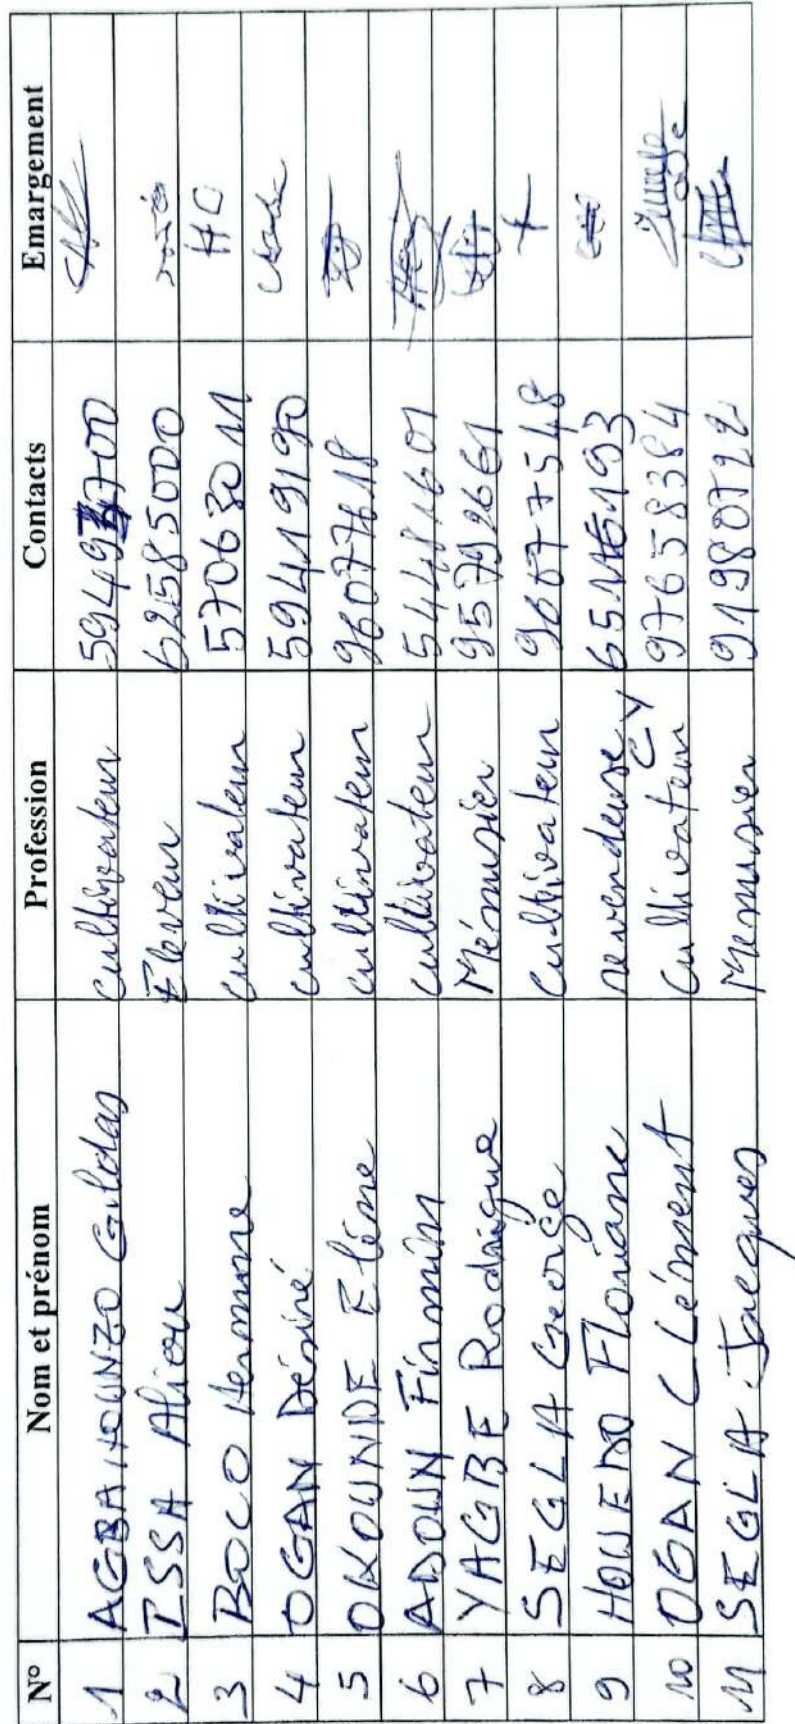 N° Nom et prénom Profession Contacts Emargement
1 AGBAHOUNZO Gildas cultivateur
2 ISSA Aliou Eleveur 62585000
3 BOCO Hermane cultivateur 57063011 HC
4 OGAN Désiré cultivateur 59419190
5 OKOUNDE Elène cultivateur 96077618
6 ADOUN Firmin cultivateur 54481601
7 YAGBE Rodrigue Ménusier 95792661
8 SEGLA George Cultivateur 96677548
9 HOUEDO Floriane revendeuse
10 OGAN Clément Cultivateur 97658384
11 SEGLA Jacques Menusier 91980722